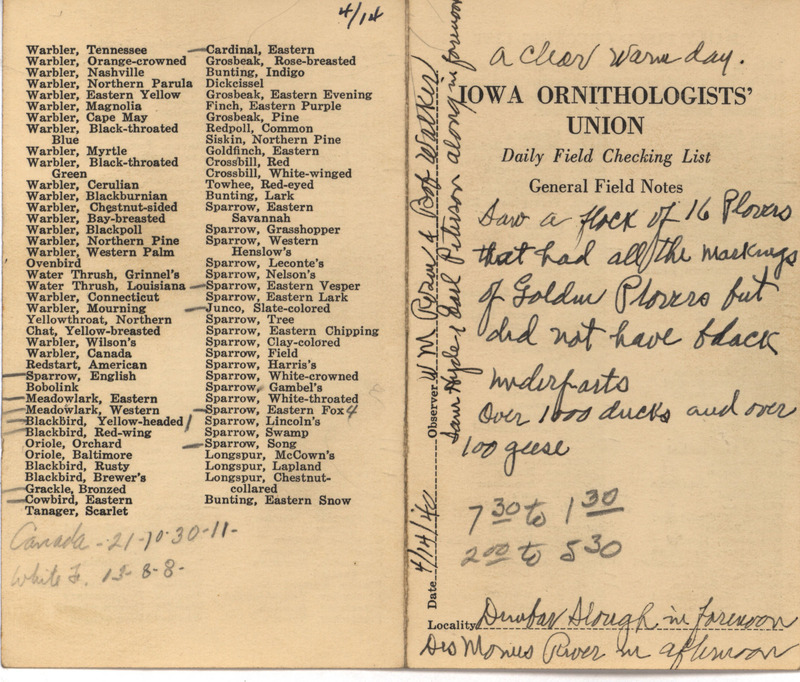 4/14
Warbler, Tennessee
Warbler, Orange-crowned
Warbler, Nashville
Warbler, Northern Parula
Warbler, Eastern Yellow
Warbler, Magnolia
Warbler, Cape May
Warbler, Black-throated
Blue
Warbler, Myrtle
Warbler, Black-throated
Green
Warbler, Cerulian
Warbler, Blackburnian
Warbler, Chestnut-sided
Warbler, Bay-breasted
Warbler, Blackpoll
Warbler, Northern Pine
Warbler, Western Palm
Ovenbird
Water Thrush, Grinnel's
Water Thrush, Louisiana
Warbler, Connecticut
Warbler, Mourning
Yellowthroat, Northern
Chat, Yellow-breasted
Warbler, Wilson's
Warbler, Canada
Redstart, American
Sparrow, English
Bobolink
Meadowlark, Eastern
Meadowlark, Western
Blackbird, Yellow-headed 1
Blackbird, Red-wing
Oriole, Orchard
Oriole, Baltimore
Blackbird, Rusty
Blackbird, Brewer's
Grackle, Bronzed
Cowbird, Eastern
Tanager, Scarlet
Canada - 21-10-30-11-
White F. 13-8-8-
Cardinal, Eastern
Grosbeak, Rose-breasted
Bunting, Indigo
Dickcissel
Grosbeak, Eastern Evening
Finch, Eastern Purple
Grosbeak, Pine
Redpoll, Common
Siskin, Northern Pine
Goldfinch, Eastern
Crossbill, Red
Crossbill, White-winged
Towhee, Red-eyed
Bunting, Lark
Sparrow, Eastern
Savannah
Sparrow, Grasshopper
Sparrow, Western
Henslow's
Sparrow, Leconte's
Sparrow, Nelson's
Sparrow, Eastern Vesper
Sparrow, Eastern Lark
Junco, Slate-colored
Sparrow, Tree
Sparrow, Eastern Chipping
Sparrow, Clay-colored
Sparrow, Field
Sparrow, Harris's
Sparrow, White-crowned
Sparrow, Gambel's
Sparrow, White-throated
Sparrow, Eastern Fox 4
Sparrow, Lincoln's
Sparrow, Swamp
Sparrow, Song
Longspur, McCown's
Longspur, Lapland
Longspur, Chestnut-
collared
Bunting, Eastern Snow
Date 4/14/40 Observer W M Rosen & Bob Walker
Hyde & Earl Peterson along in forenoon
A clear warm day.
IOWA ORNITHOLOGISTS'
UNION
Daily Field Checking List
General Field Notes
Saw a flock of 16 Plovers
that had all the markings
of Golden Plovers but
did not have black
underparts
Over 1000 ducks and over
100 geese
7 30 to 1 30
2 00 to 5 30
Locality Dunbar Slough in forenoon
Des Moines River in afternoon